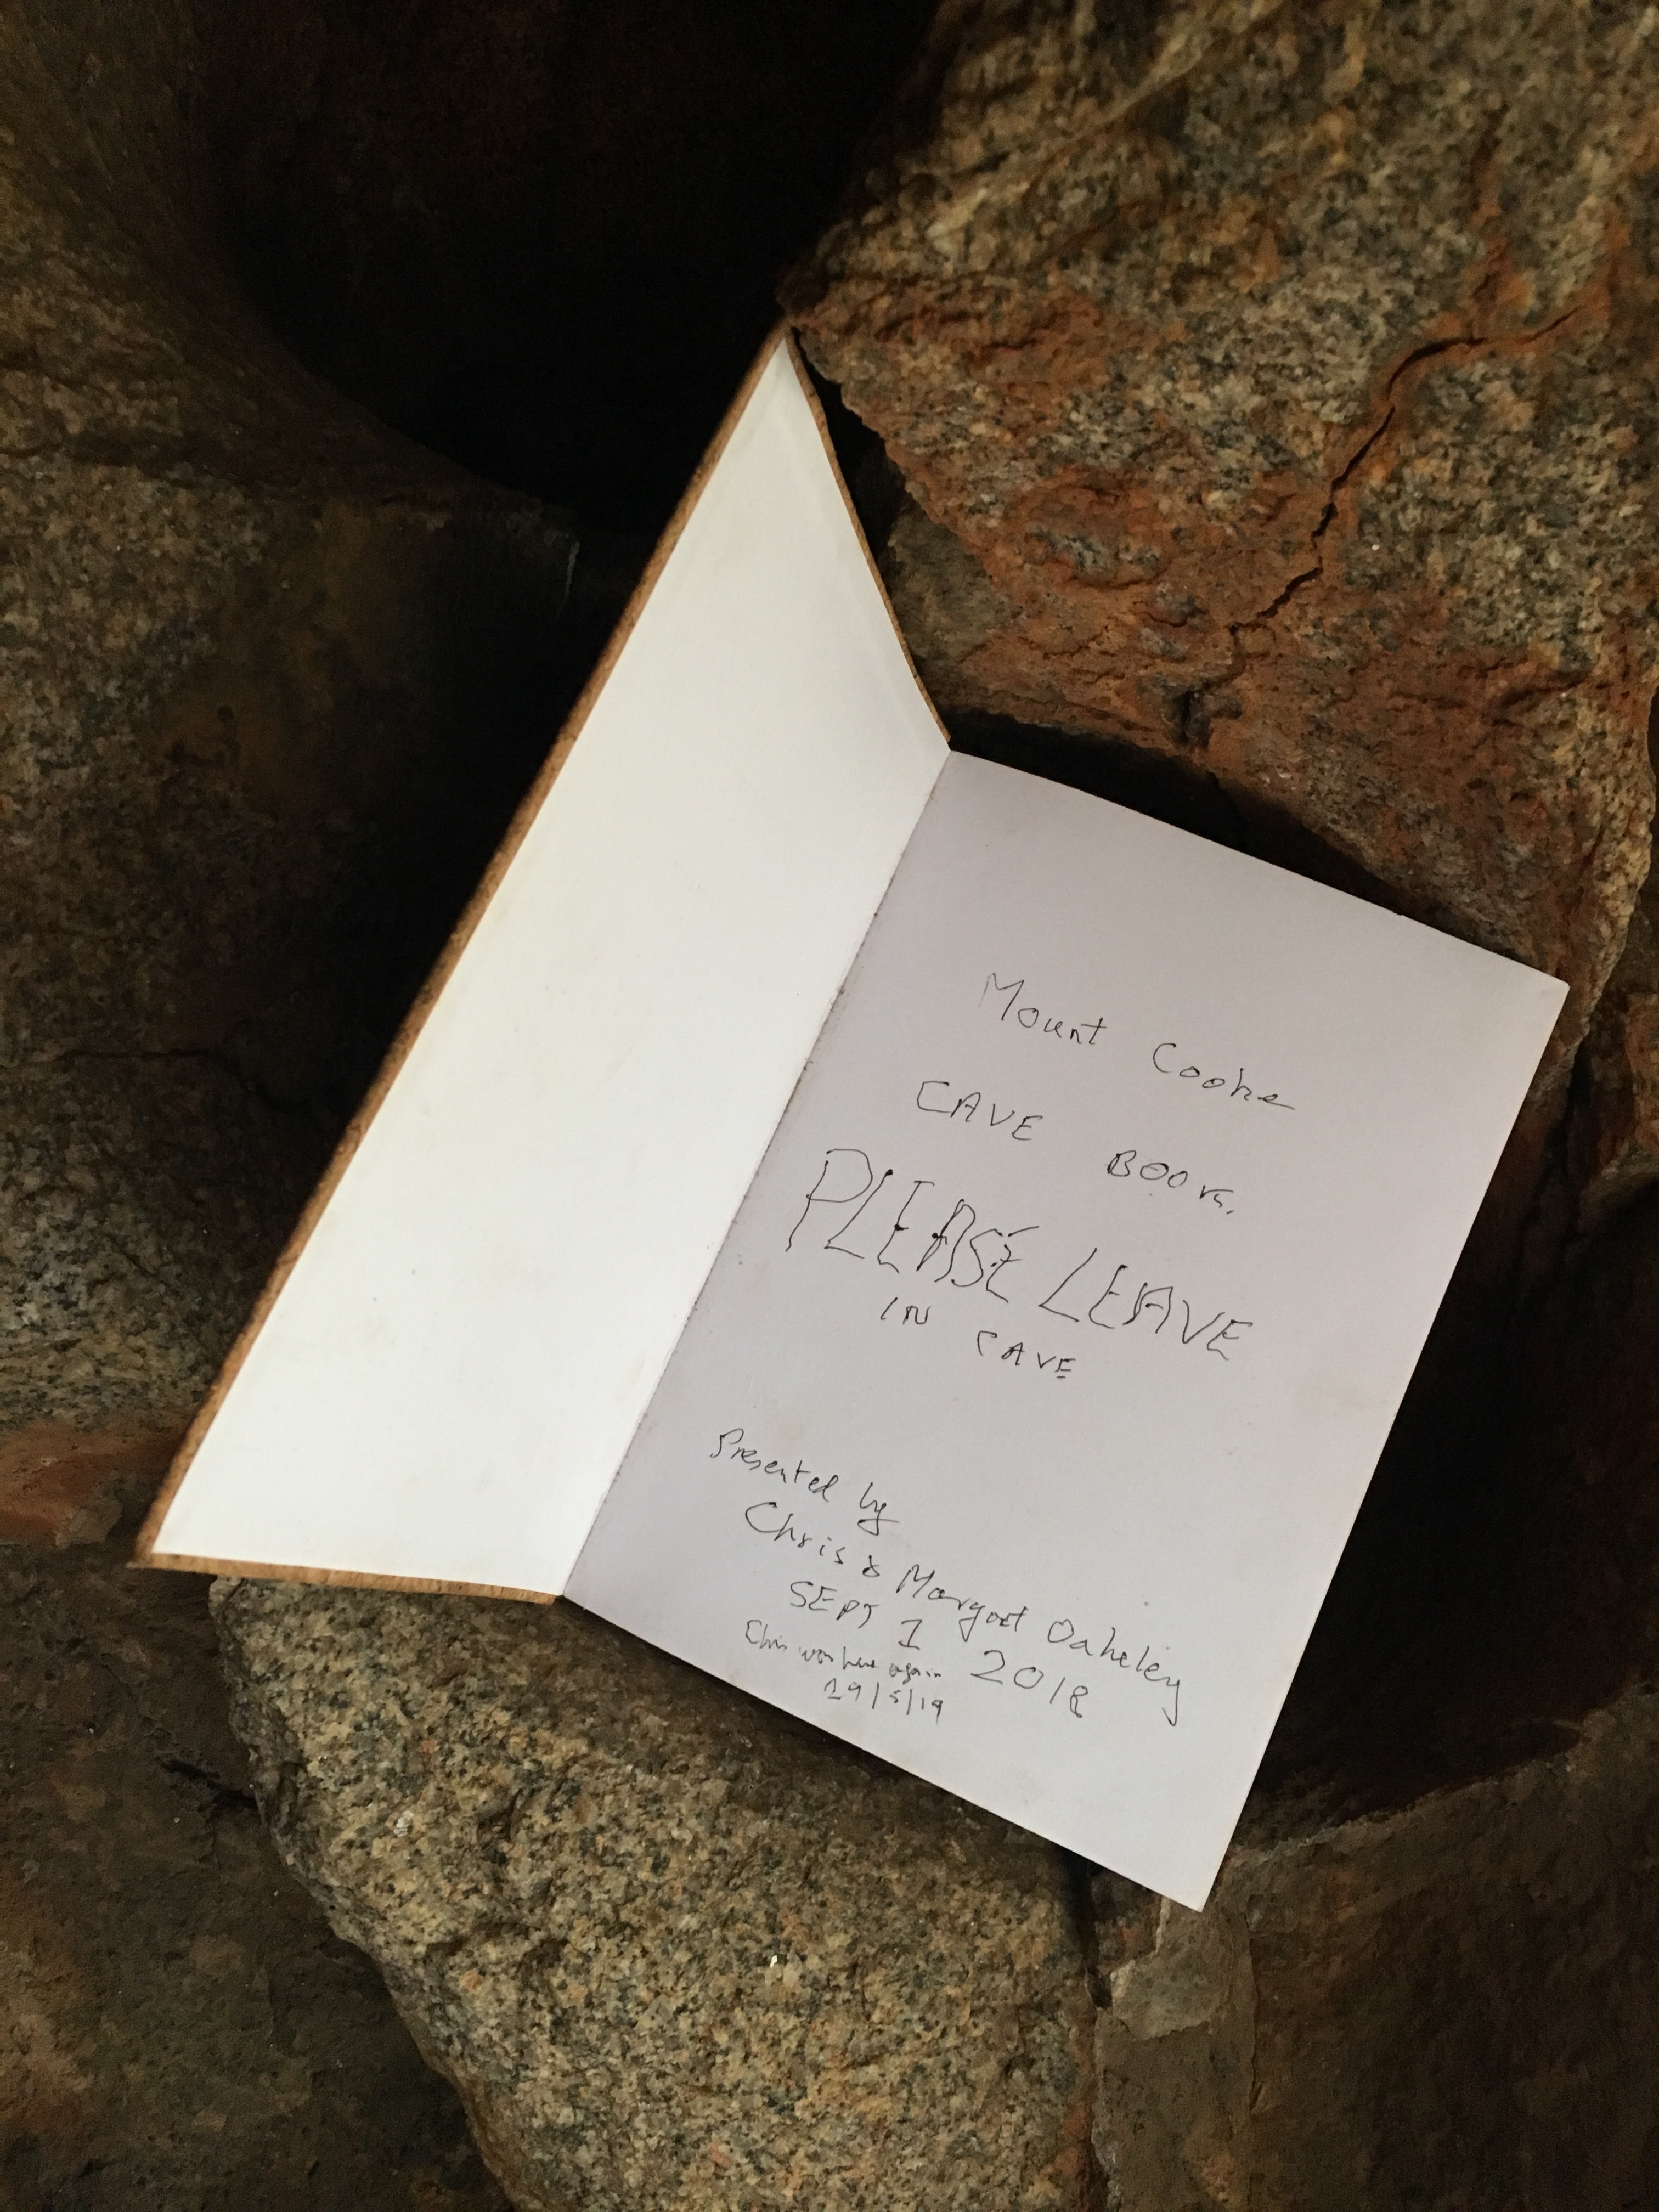 Mount Cooke
CAVE BOOK.
PLEASE LEAVE
IN CAVE
Presented by
Chris & Margaret Oakeley
SEPT 1 2018
Chris was here again
29/5/19